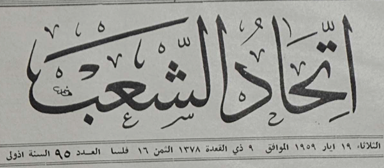 اتحاد الشعب
الثلاثاء ١٩ ايار ١٩٥٩ الموافق ٩ ذي القعدة ١٣٧٨ الثمن ١٦ فلسا العدد ٩٥ السنة الاولى